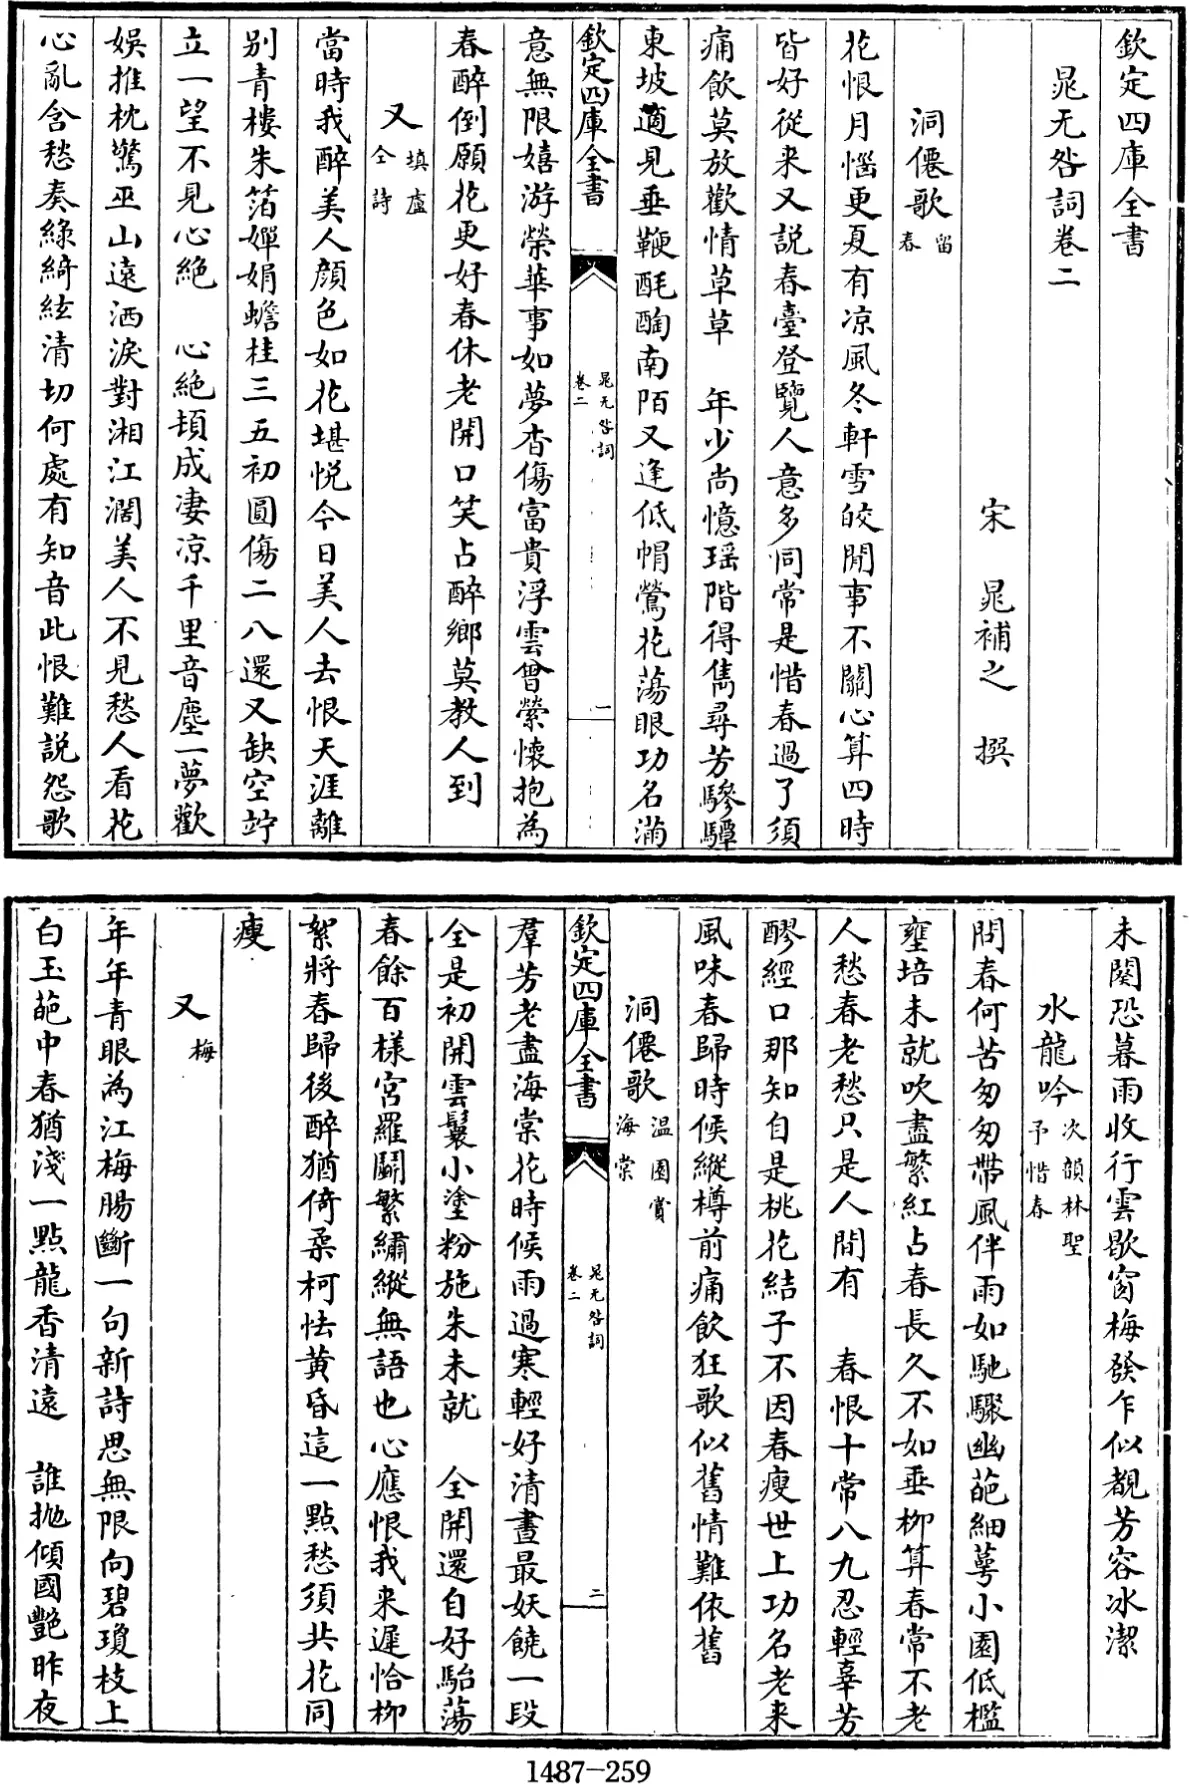 欽定四庫全書
晁无咎詞卷二
宋 晁補之 撰
洞僊歌 留春
花恨月惱更夏有凉風冬軒雪皎閒事不關心算四時
皆好從来又説春臺登覽人意多同常是惜春過了須
痛飲莫放歡情草草 年少尚憶瑶階得雋尋芳驂驔
東坡適見垂鞭酕醄南陌又逢低帽鶯花蕩眼功名滿
欽定四庫全書 晁无咎詞 卷二 一
意無限嬉游榮華事如夢杳傷富貴浮雲曾縈懷抱為
春醉倒願花更好春休老開口笑占醉鄉莫教人到
又 填盧仝詩
當時我醉美人顔色如花堪悦今日美人去恨天涯離
别青樓朱箔嬋娟蟾桂三五初圓傷二八還又缺空竚
立一望不見心絶 心絶頓成凄凉千里音塵一夢歡
娱推枕驚巫山遠洒淚對湘江濶美人不見愁人看花
心亂含愁奏綠綺絃清切何處有知音此恨難説怨歌
未闋恐暮雨收行雲歇窗梅發乍似覩芳容冰潔
水龍吟 次韻林聖予惜春
問春何苦匆匆帶風伴雨如馳驟幽葩細萼小園低檻
壅培未就吹盡繁紅占春長久不如垂栁算春常不老
人愁春老愁只是人間有 春恨十常八九忍輕辜芳
醪經口那知自是桃花結子不因春瘦世上功名老来
風味春歸時候縱樽前痛飲狂歌似舊情難依舊
洞僊歌 温園賞海棠
欽定四庫全書 晁无咎詞 卷二 二
羣芳老盡海棠花時候雨過寒輕好清晝最妖饒一段
全是初開雲鬟小塗粉施朱未就 全開還自好駘蕩
春餘百樣宫羅鬬繁繡縱無語也心應恨我来遲恰栁
絮將春歸後醉猶倚柔柯怯黄昏這一點愁須共花同
瘦
又 梅
年年青眼為江梅腸斷一句新詩思無限向碧瓊枝上
白玉葩中春猶淺一點龍香清遠 誰抛傾國艷昨夜
1487-259